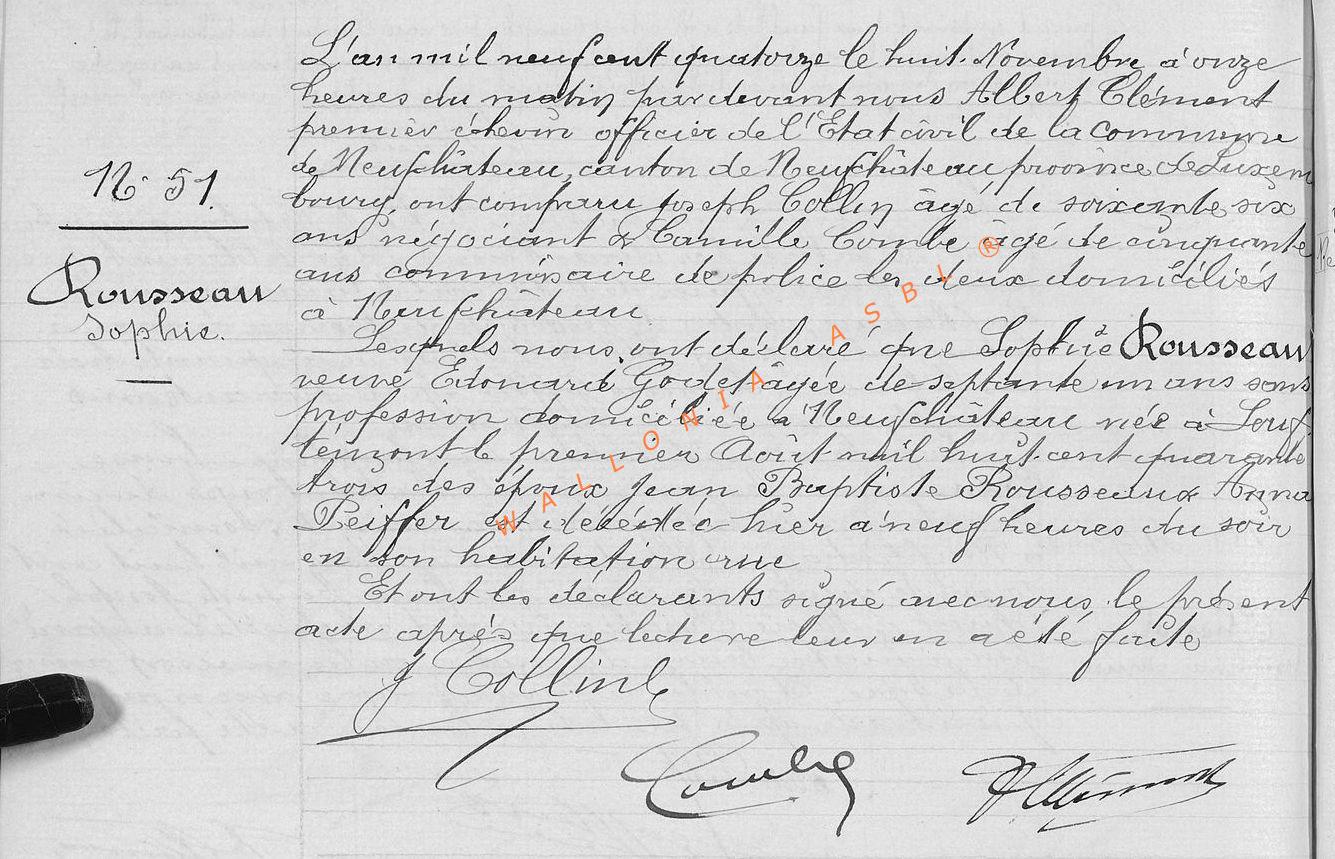 L'an mil neuf cent quatorze le huit Novembre à onze
heures du matin pardevant nous Albert Clément
premier échevin officier de l'Etat civil de la commune
de Neufchâteau, canton de Neufchâteau province de Luxem
bourg, ont comparu Joseph Collin âgé de soixante six
ans négociant & Camille Combe âgé de cinquante
ans commissaire de police les deux domiciliés
à Neufchâteau
Lesquels nous ont déclaré que Sophie Rousseau
veuve Edouard Godet âgée de septante un ans sans
profession domiciliée à Neufchâteau née à Louf
témont le premier Août mil huit cent quarante
trois des époux Jean Baptiste Rousseau & Anna
Peiffer est décédée hier à neuf heures du soir
en son habitation rue
Et ont les déclarants signé avec nous le présent
acte après que lecture leur en a été faite
N° 51.
Rousseau
Sophie.
J Collin
Combe
A Clément
WALLONIA ASBL ®